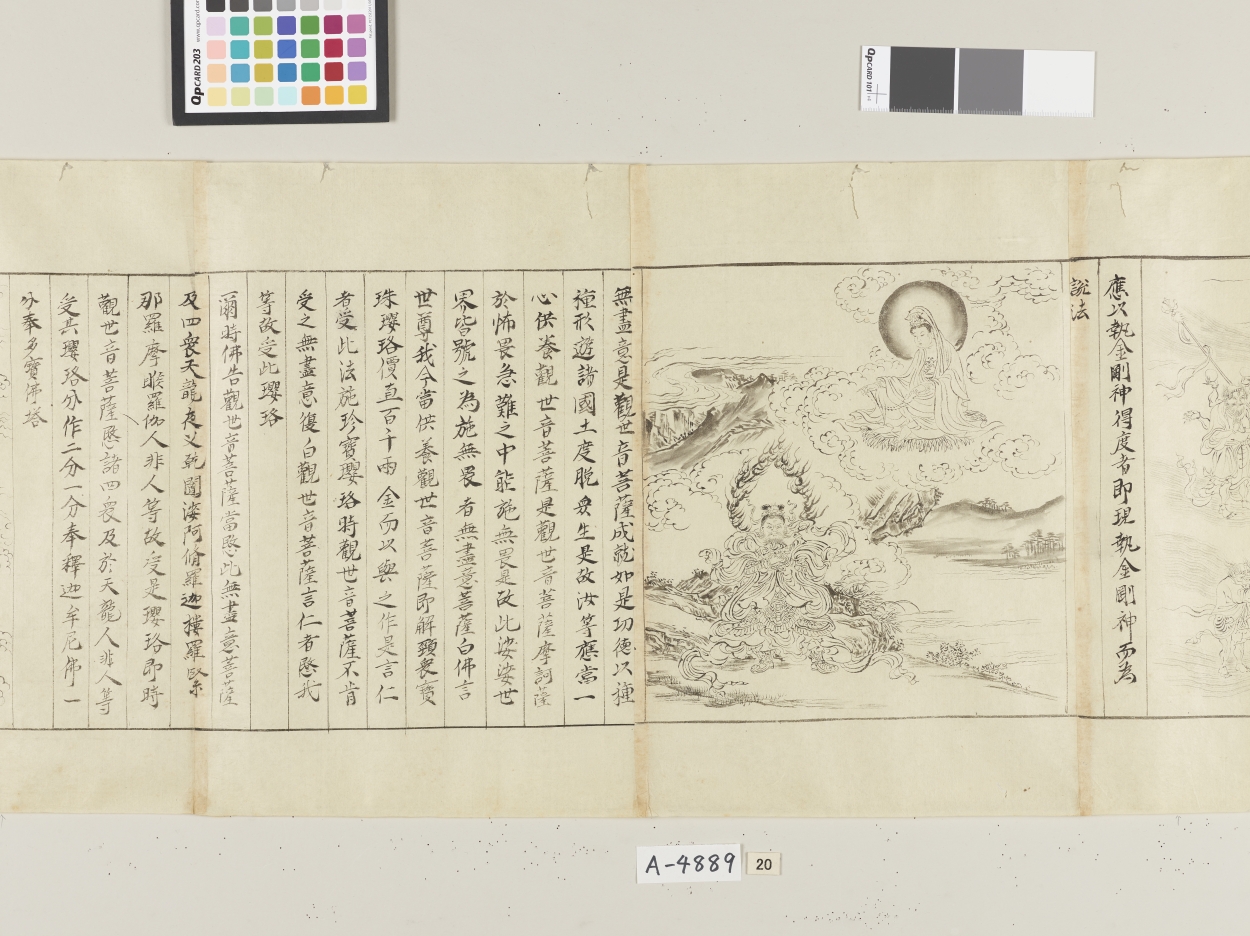 應以執金剛神得度者即現執金剛神而為
說法
無盡意是觀世音菩薩成就如是功德以種
種形遊諸國土度脫眾生是故汝等應當一
心供養觀世音菩薩是觀世音菩薩摩訶薩
於怖畏急難之中能施無畏是故此娑婆世
界皆號之為施無畏者無盡意菩薩白佛言
世尊我今當供養觀世音菩薩即解頸衆寶
珠瓔珞價直百千兩金而以與之作是言仁
者受此法施珍寶瓔珞時觀世音菩薩不肯
受之無盡意復白觀世音菩薩言仁者愍我
等故受此瓔珞
爾時佛告觀世音菩薩當愍此無盡意菩薩
及四衆天龍夜叉乾闥婆阿修羅迦樓羅緊
那羅摩睺羅伽人非人等故受是瓔珞即時
觀世音菩薩愍諸四衆及於天龍人非人等
受其瓔珞分作二分一分奉釋迦牟尼佛一
分奉多寶佛塔
A-4889
20
QpCARD 203
www.qpcard.com
QpCARD 101